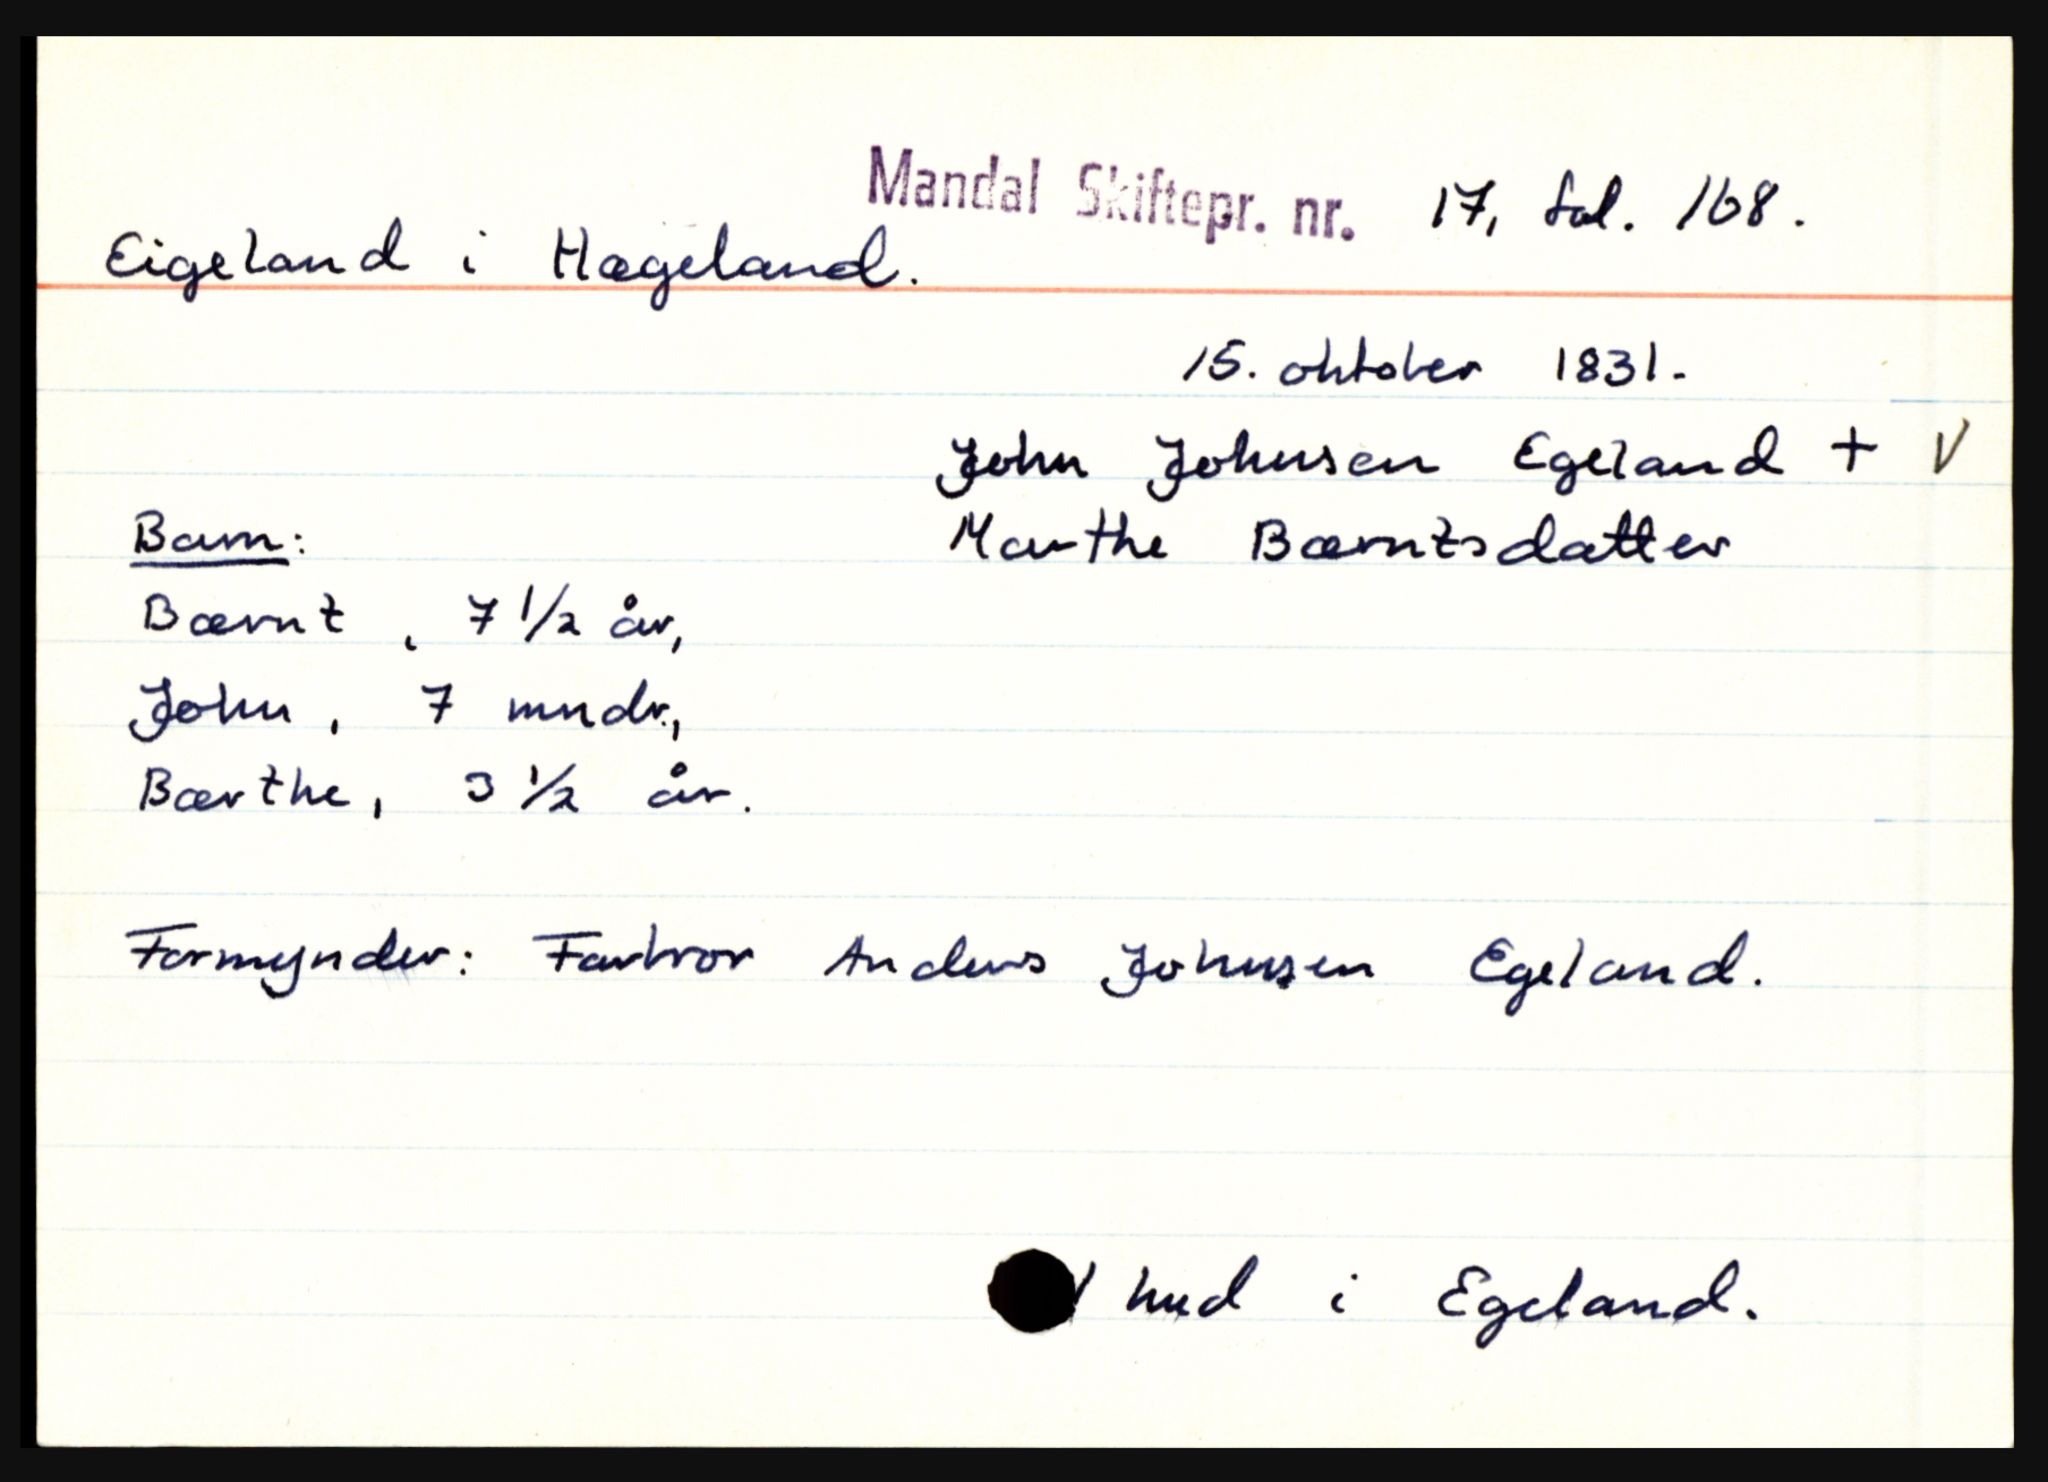 Mandal Skiftepr. nr. 17, fol. 168.
Eigeland i Hægeland.
15. oktober 1831.
John Johnsen Egeland + V
Marthe Bærntsdatter
Barn:
Bærnt, 7 1/2 år,
John, 7 mndr.,
Bærthe, 3 1/2 år.
Formynder: Farbror Anders Johnsen Egeland.
hud i Egeland.